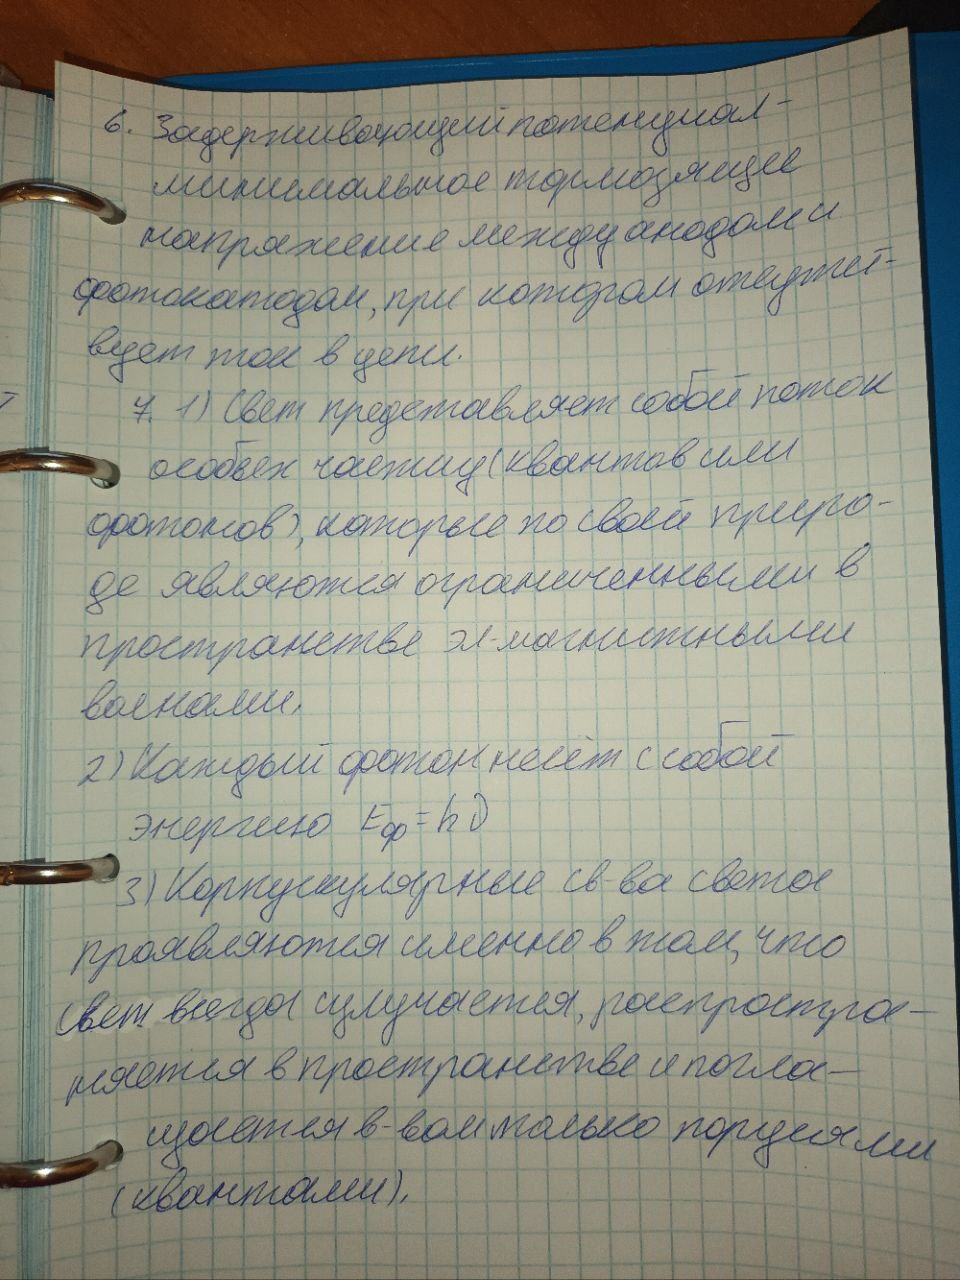 6. Задерживающий потенциал-
минимальное тормозящее
напряжение между анодом и
фотокатодом, при котором отсутст-
вует ток в цепи.
7. 1) Свет представляет собой поток
особых частиц (квантов или
фотонов), которые по своей приро-
де являются ограниченными в
пространстве эл-магнитными
волнами.
2) Каждый фотон несёт с собой
энергию Eф = hν
3) Корпускулярные св-ва света
проявляются именно в том, что
свет всегда излучается, распростра-
няется в пространстве и погла-
щается в-вом только порциями
(квантами).